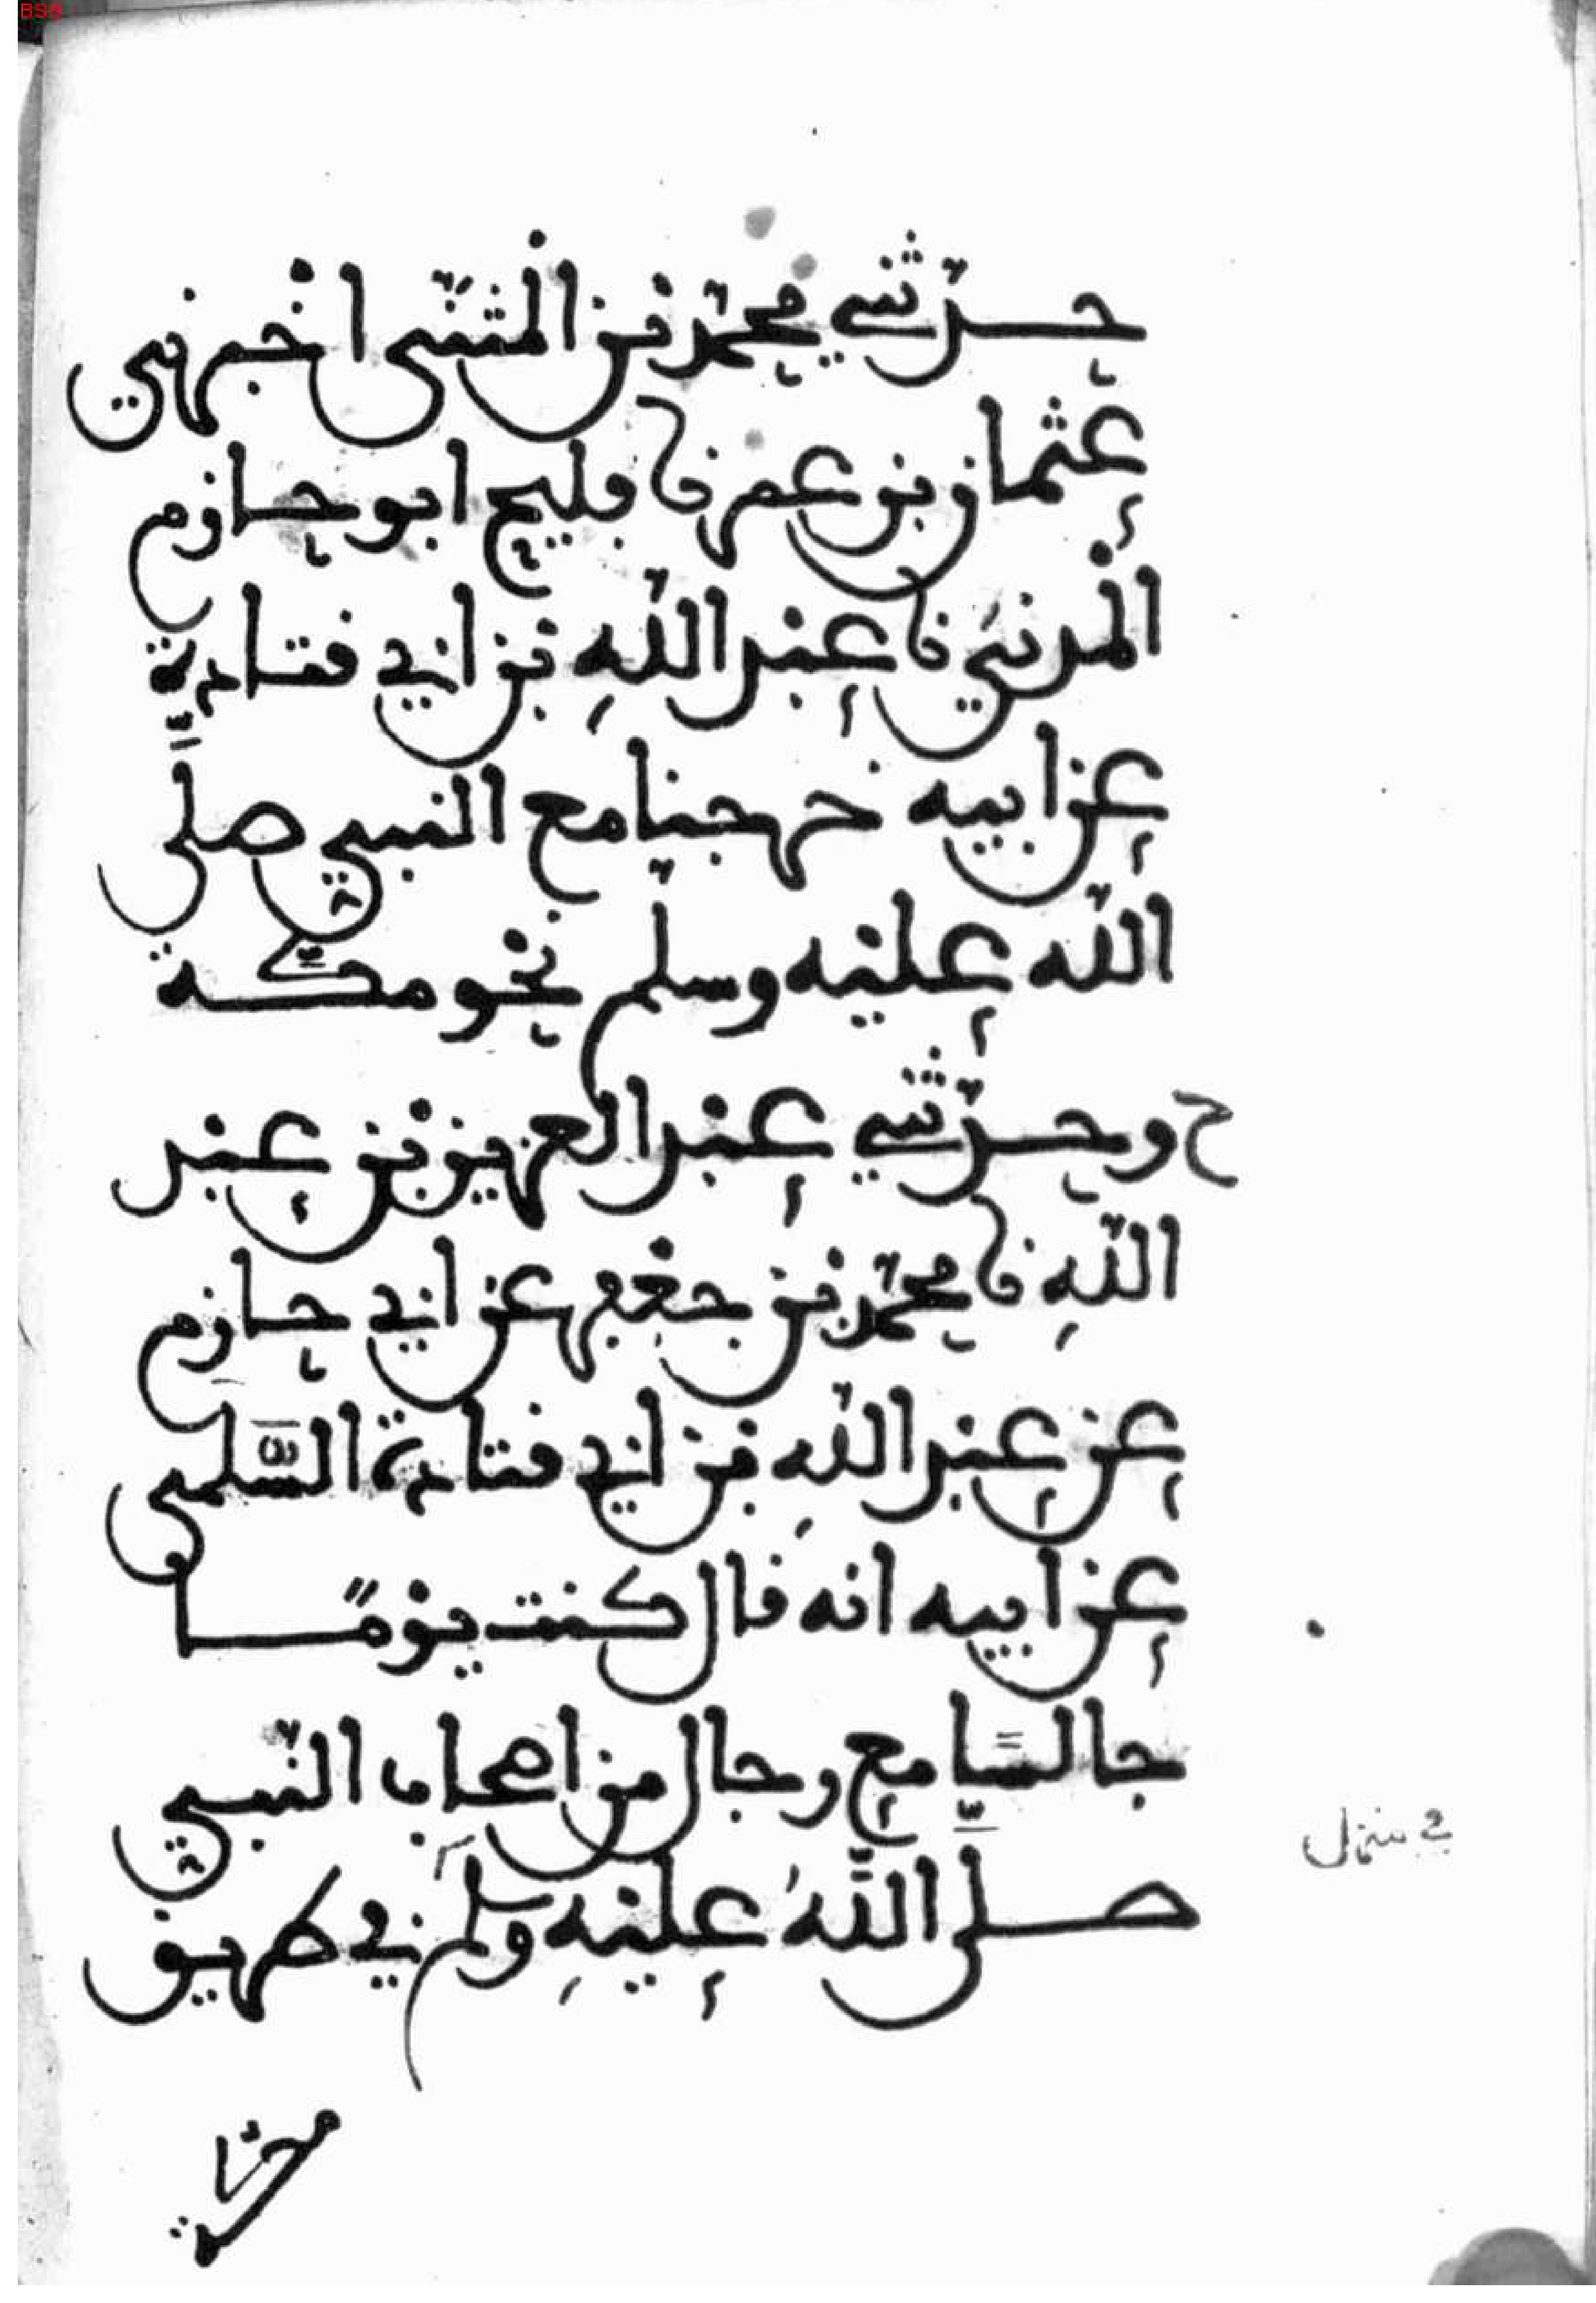 BSB
حدثني محمد بن المثنى اخبرني
عثمان بن عمر نا فليح ابو حازم
المدني نا عبد الله بن ابي قتادة
عن ابيه خرجنا مع النبي صلى
الله عليه وسلم نحو مكة
ح وحدثني عبد العزيز بن عبد
اللهِ نا محمد بن جعفر عن ابي حازم
عن عبد اللهِ بن ابي قتادة السلمي
عن ابيه انه قال كنت يومًا
جالسًا مع رجال من اصحاب النبي
صلَّى اللَّهُ عليهِ وسلم في طريق
في منزل
مكة